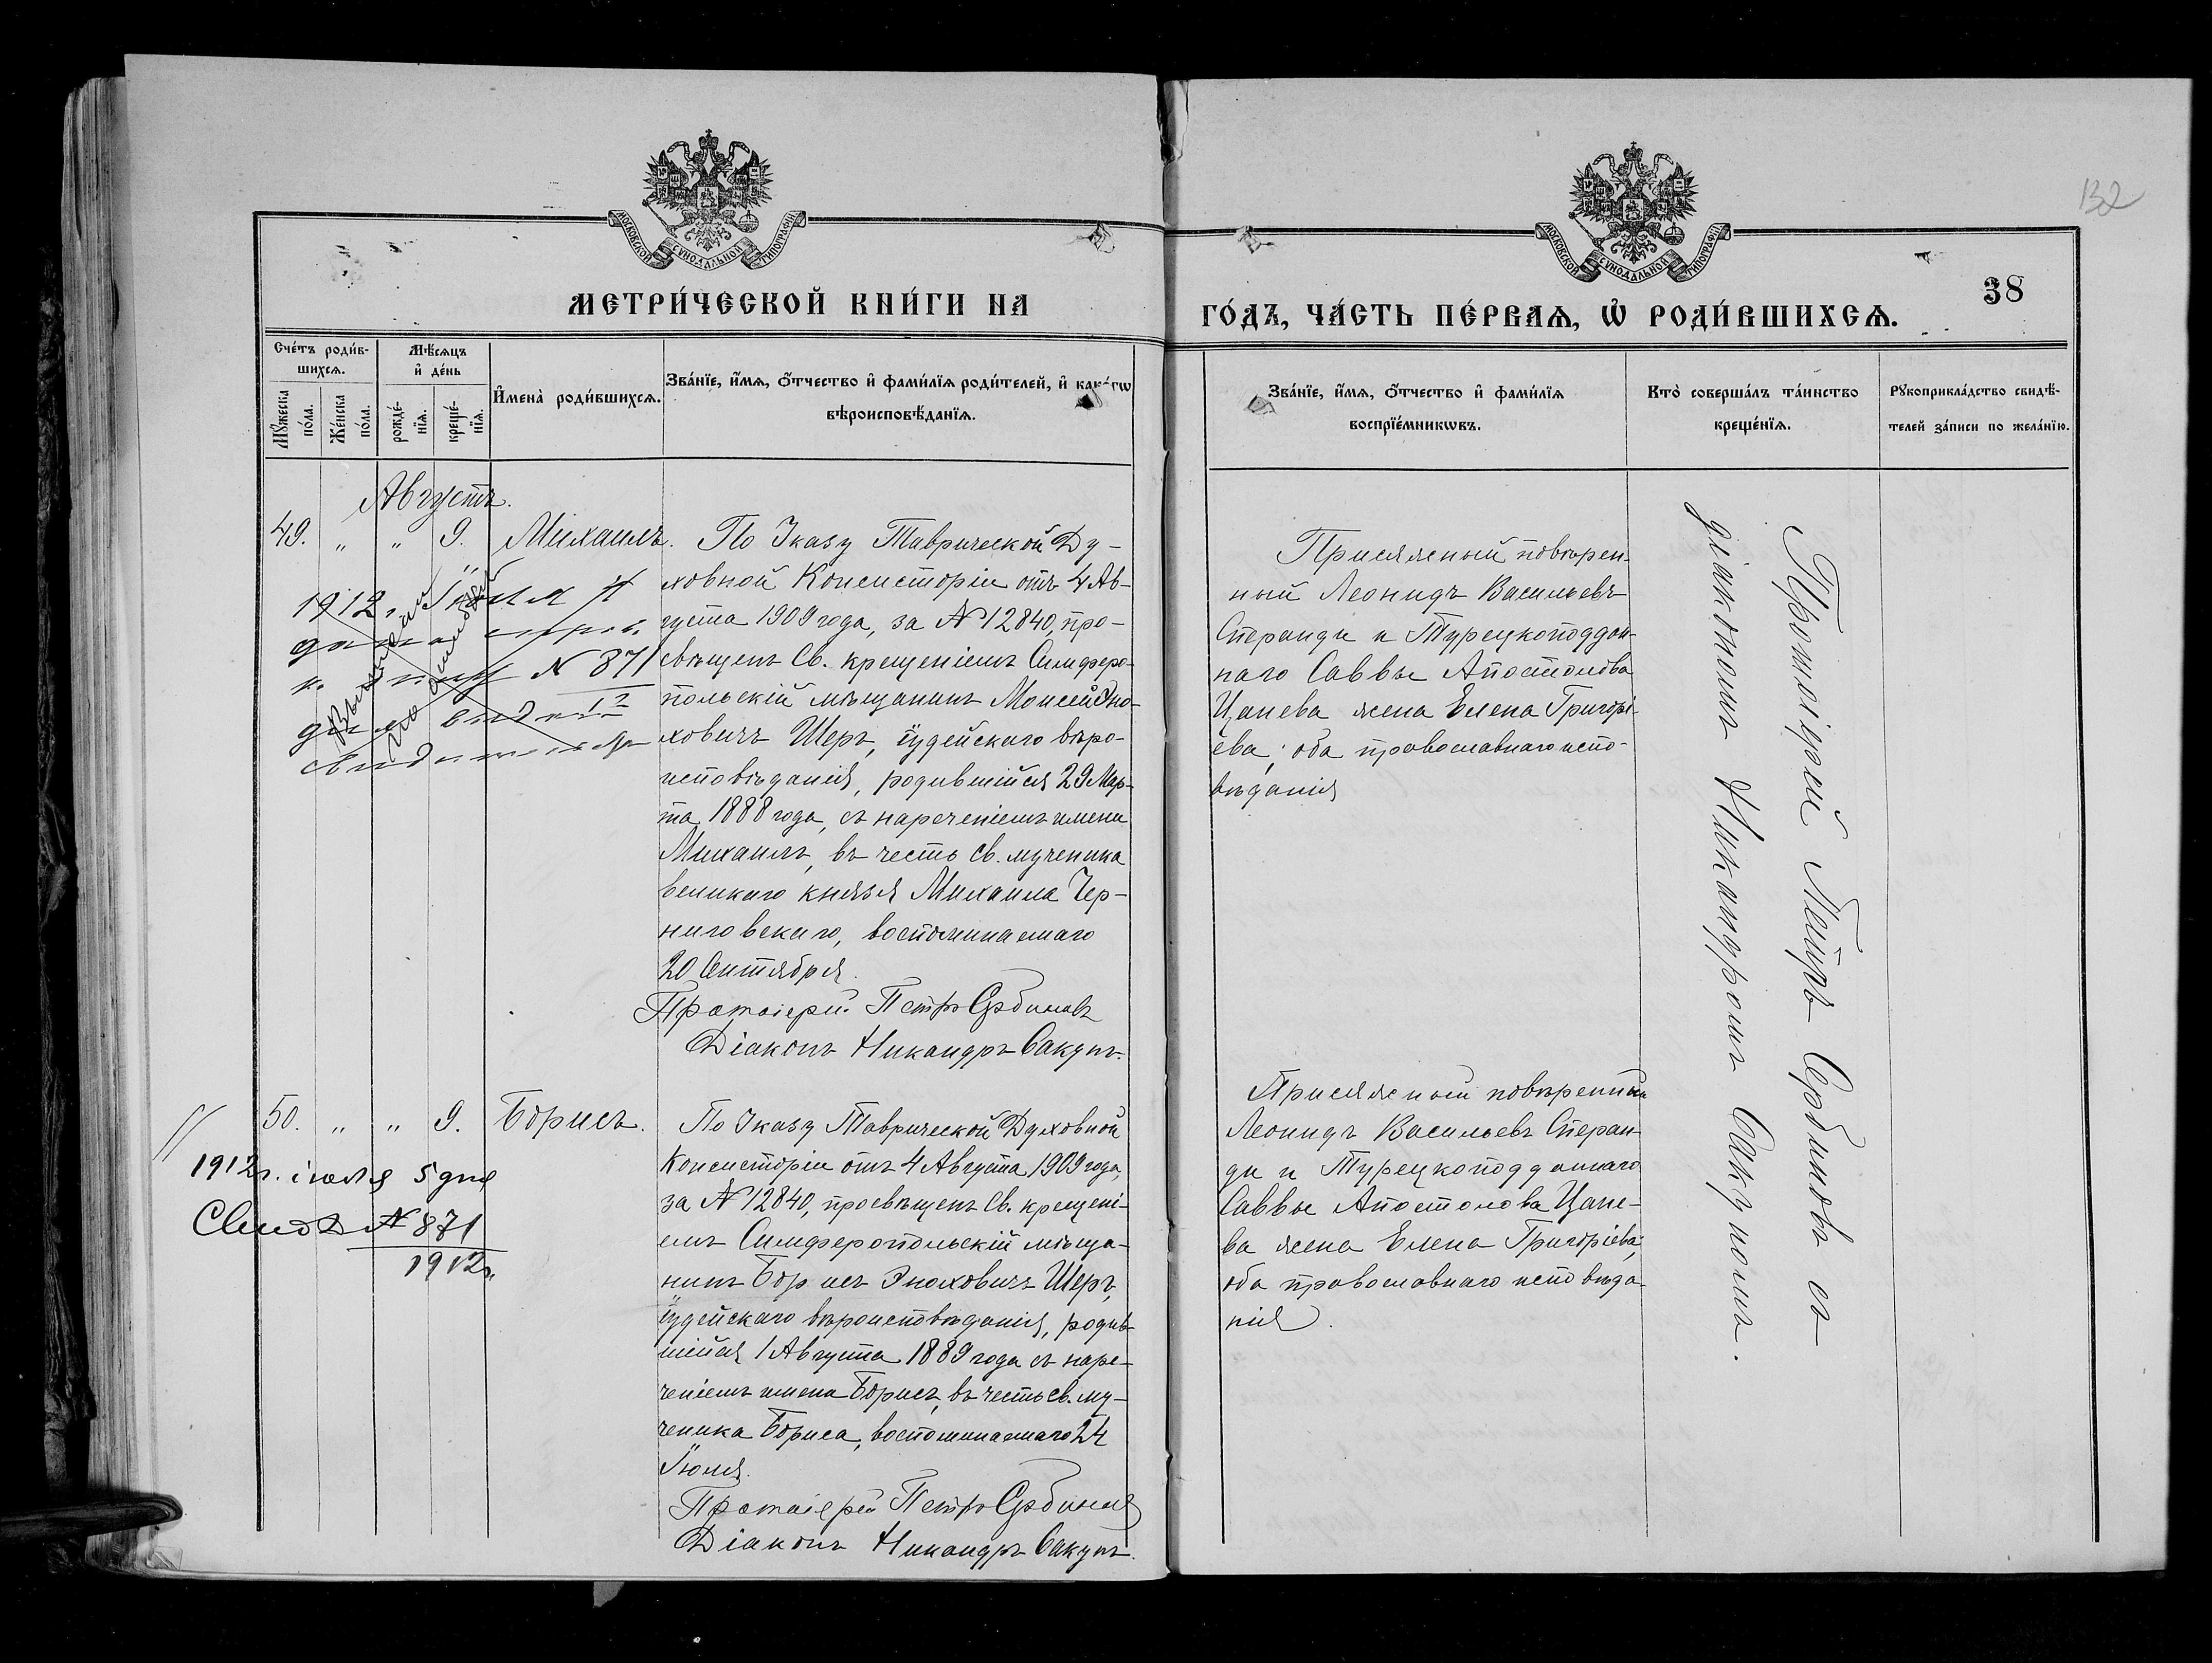 132
МОСКОВСКОЙ СѴНОДАЛЬНОЙ ТИПОГРАФІИ
МОСКОВСКОЙ СѴНОДАЛЬНОЙ ТИПОГРАФІИ
МЕТРИ́ЧЕСКОЙ КНИ́ГИ НА
ГО́ДЪ, ЧА́СТЬ ПЕ́РВАѦ, Ѡ҆ РОДИ́ВШИХСѦ.
38
Сче́тъ роди́в-
шихсѧ.
Мꙋ́жеска
по́ла.
Же́нска
по́ла.
Мѣ́сѧцъ
и҆ де́нь
рожде́-
нїѧ.
креще́-
нїѧ.
И҆мена̀ роди́вшихсѧ.
Зва́нїе, и҆́мѧ, ѻ҆́тчество и҆ фами́лїѧ роди́телей, и҆ како́гѡ
вѣроисповѣ́данїѧ.
Зва́нїе, и҆́мѧ, ѻ҆́тчество и҆ фами́лїѧ
воспрїе́мникѡвъ.
Кто̀ соверша́лъ та́инство
креще́нїѧ.
Рꙋкоприкла́дство свидѣ́-
телей за́писи по жела́нїю.
Августъ.
49. " " 9. Михаилъ.
По Указу Таврической Ду-
ховной Консисторіи отъ 4 Ав-
густа 1909 года, за № 12840, про-
свѣщенъ Св. крещеніемъ Симферо-
польскій мѣщанинъ Моисей Эно-
ховичъ Шеръ, іудейскаго вѣро-
исповѣданія, родившійся 29 Мар-
та 1888 года, съ нареченіемъ имени
Михаилъ, въ честь Св. мученика
великаго князя Михаила Чер-
ниговскаго, воспоминаемаго
20 Сентября.
Протоіерей Петръ Сербиновъ
Діаконъ Никандръ Сакунъ.
1912 г. Іюля
№ 871
Выписана
по ошибкѣ
Присяжный повѣрен-
ный Леонидъ Васильевъ
Сперанди и Турецкоподдан-
наго Саввы Апостолова
Цанева жена Елена Григорі-
ева; оба православнаго испо-
вѣданія
Протоіерей Петръ Сербиновъ съ
діакономъ Никандромъ Сакуномъ.
50. " " 9. Борисъ.
По Указу Таврической Духовной
Консисторіи отъ 4 Августа 1909 года,
за № 12840, просвѣщенъ Св. крещені-
емъ Симферопольскій мѣща-
нинъ Борисъ Эноховичъ Шеръ,
іудейскаго вѣроисповѣданія, родив-
шійся 1 Августа 1889 года съ наре-
ченіемъ имени Борисъ, въ честь св. му-
ченика Бориса, воспоминаемаго 24
Іюля.
Протоіерей Петръ Сербиновъ
Діаконъ Никандръ Сакунъ.
1912 г. іюля 5 дня
Свид № 871
1912 г.
Присяжный повѣренный
Леонидъ Васильевъ Сперан-
ди и Турецкоподданнаго
Саввы Апостолова Цане-
ва жена Елена Григоріева;
оба православнаго исповѣда-
нія.